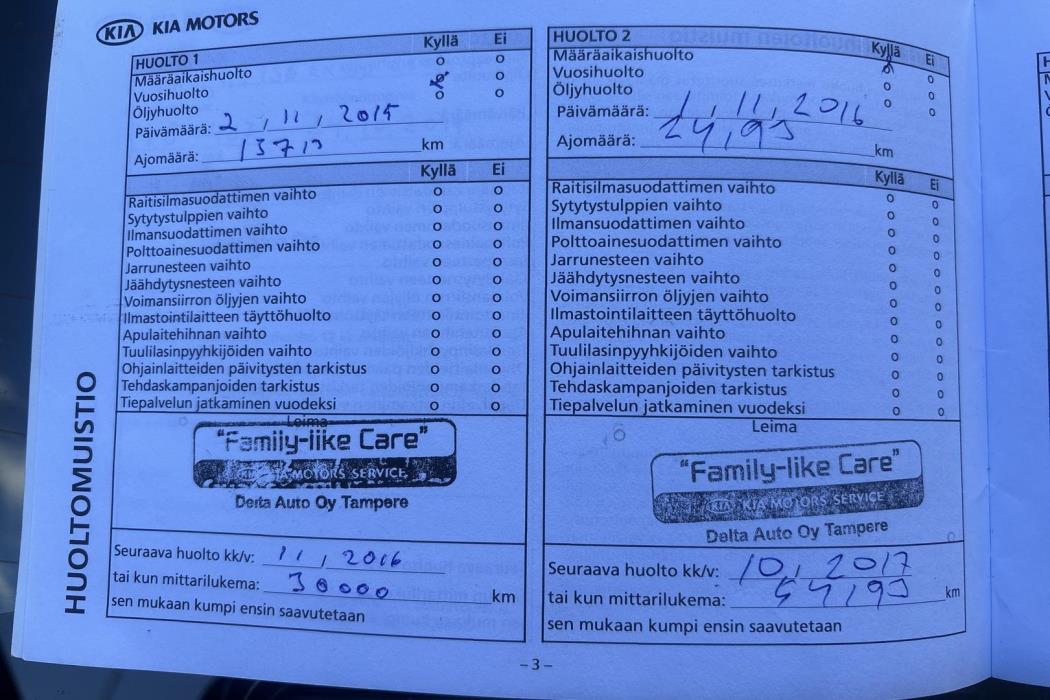 KIA KIA MOTORS
HUOLTO 1 Kyllä Ei
Määräaikaishuolto o o
Vuosihuolto o
Öljyhuolto o o
Päivämäärä: 2, 11, 2015
Ajomäärä: km
Kyllä Ei
Raitisilmasuodattimen vaihto o o
Sytytystulppien vaihto o o
Ilmansuodattimen vaihto o o
Polttoainesuodattimen vaihto o o
Jarrunesteen vaihto o o
Jäähdytysnesteen vaihto o o
Voimansiirron öljyjen vaihto o o
Ilmastointilaitteen täyttöhuolto o o
Apulaitehihnan vaihto o o
Tuulilasinpyyhkijöiden vaihto o o
Ohjainlaitteiden päivitysten tarkistus o o
Tehdaskampanjoiden tarkistus o o
Tiepalvelun jatkaminen vuodeksi o o
Leima
"Family-like Care"
KIA MOTORS SERVICE
Delta Auto Oy Tampere
Seuraava huolto kk/v: 11, 2016
tai kun mittarilukema: 30000 km
sen mukaan kumpi ensin saavutetaan
HUOLTO 2 Kyllä Ei
Määräaikaishuolto o
Vuosihuolto o o
Öljyhuolto o o
Päivämäärä: 1, 11, 2016
Ajomäärä: km
Kyllä Ei
Raitisilmasuodattimen vaihto o o
Sytytystulppien vaihto o o
Ilmansuodattimen vaihto o o
Polttoainesuodattimen vaihto o o
Jarrunesteen vaihto o o
Jäähdytysnesteen vaihto o o
Voimansiirron öljyjen vaihto o o
Ilmastointilaitteen täyttöhuolto o o
Apulaitehihnan vaihto o o
Tuulilasinpyyhkijöiden vaihto o o
Ohjainlaitteiden päivitysten tarkistus o o
Tehdaskampanjoiden tarkistus o o
Tiepalvelun jatkaminen vuodeksi o o
Leima
"Family-like Care"
KIA KIA MOTORS SERVICE
Delta Auto Oy Tampere
Seuraava huolto kk/v: 10, 2017
tai kun mittarilukema: km
sen mukaan kumpi ensin saavutetaan
HUOLTOMUISTIO
– 3 –